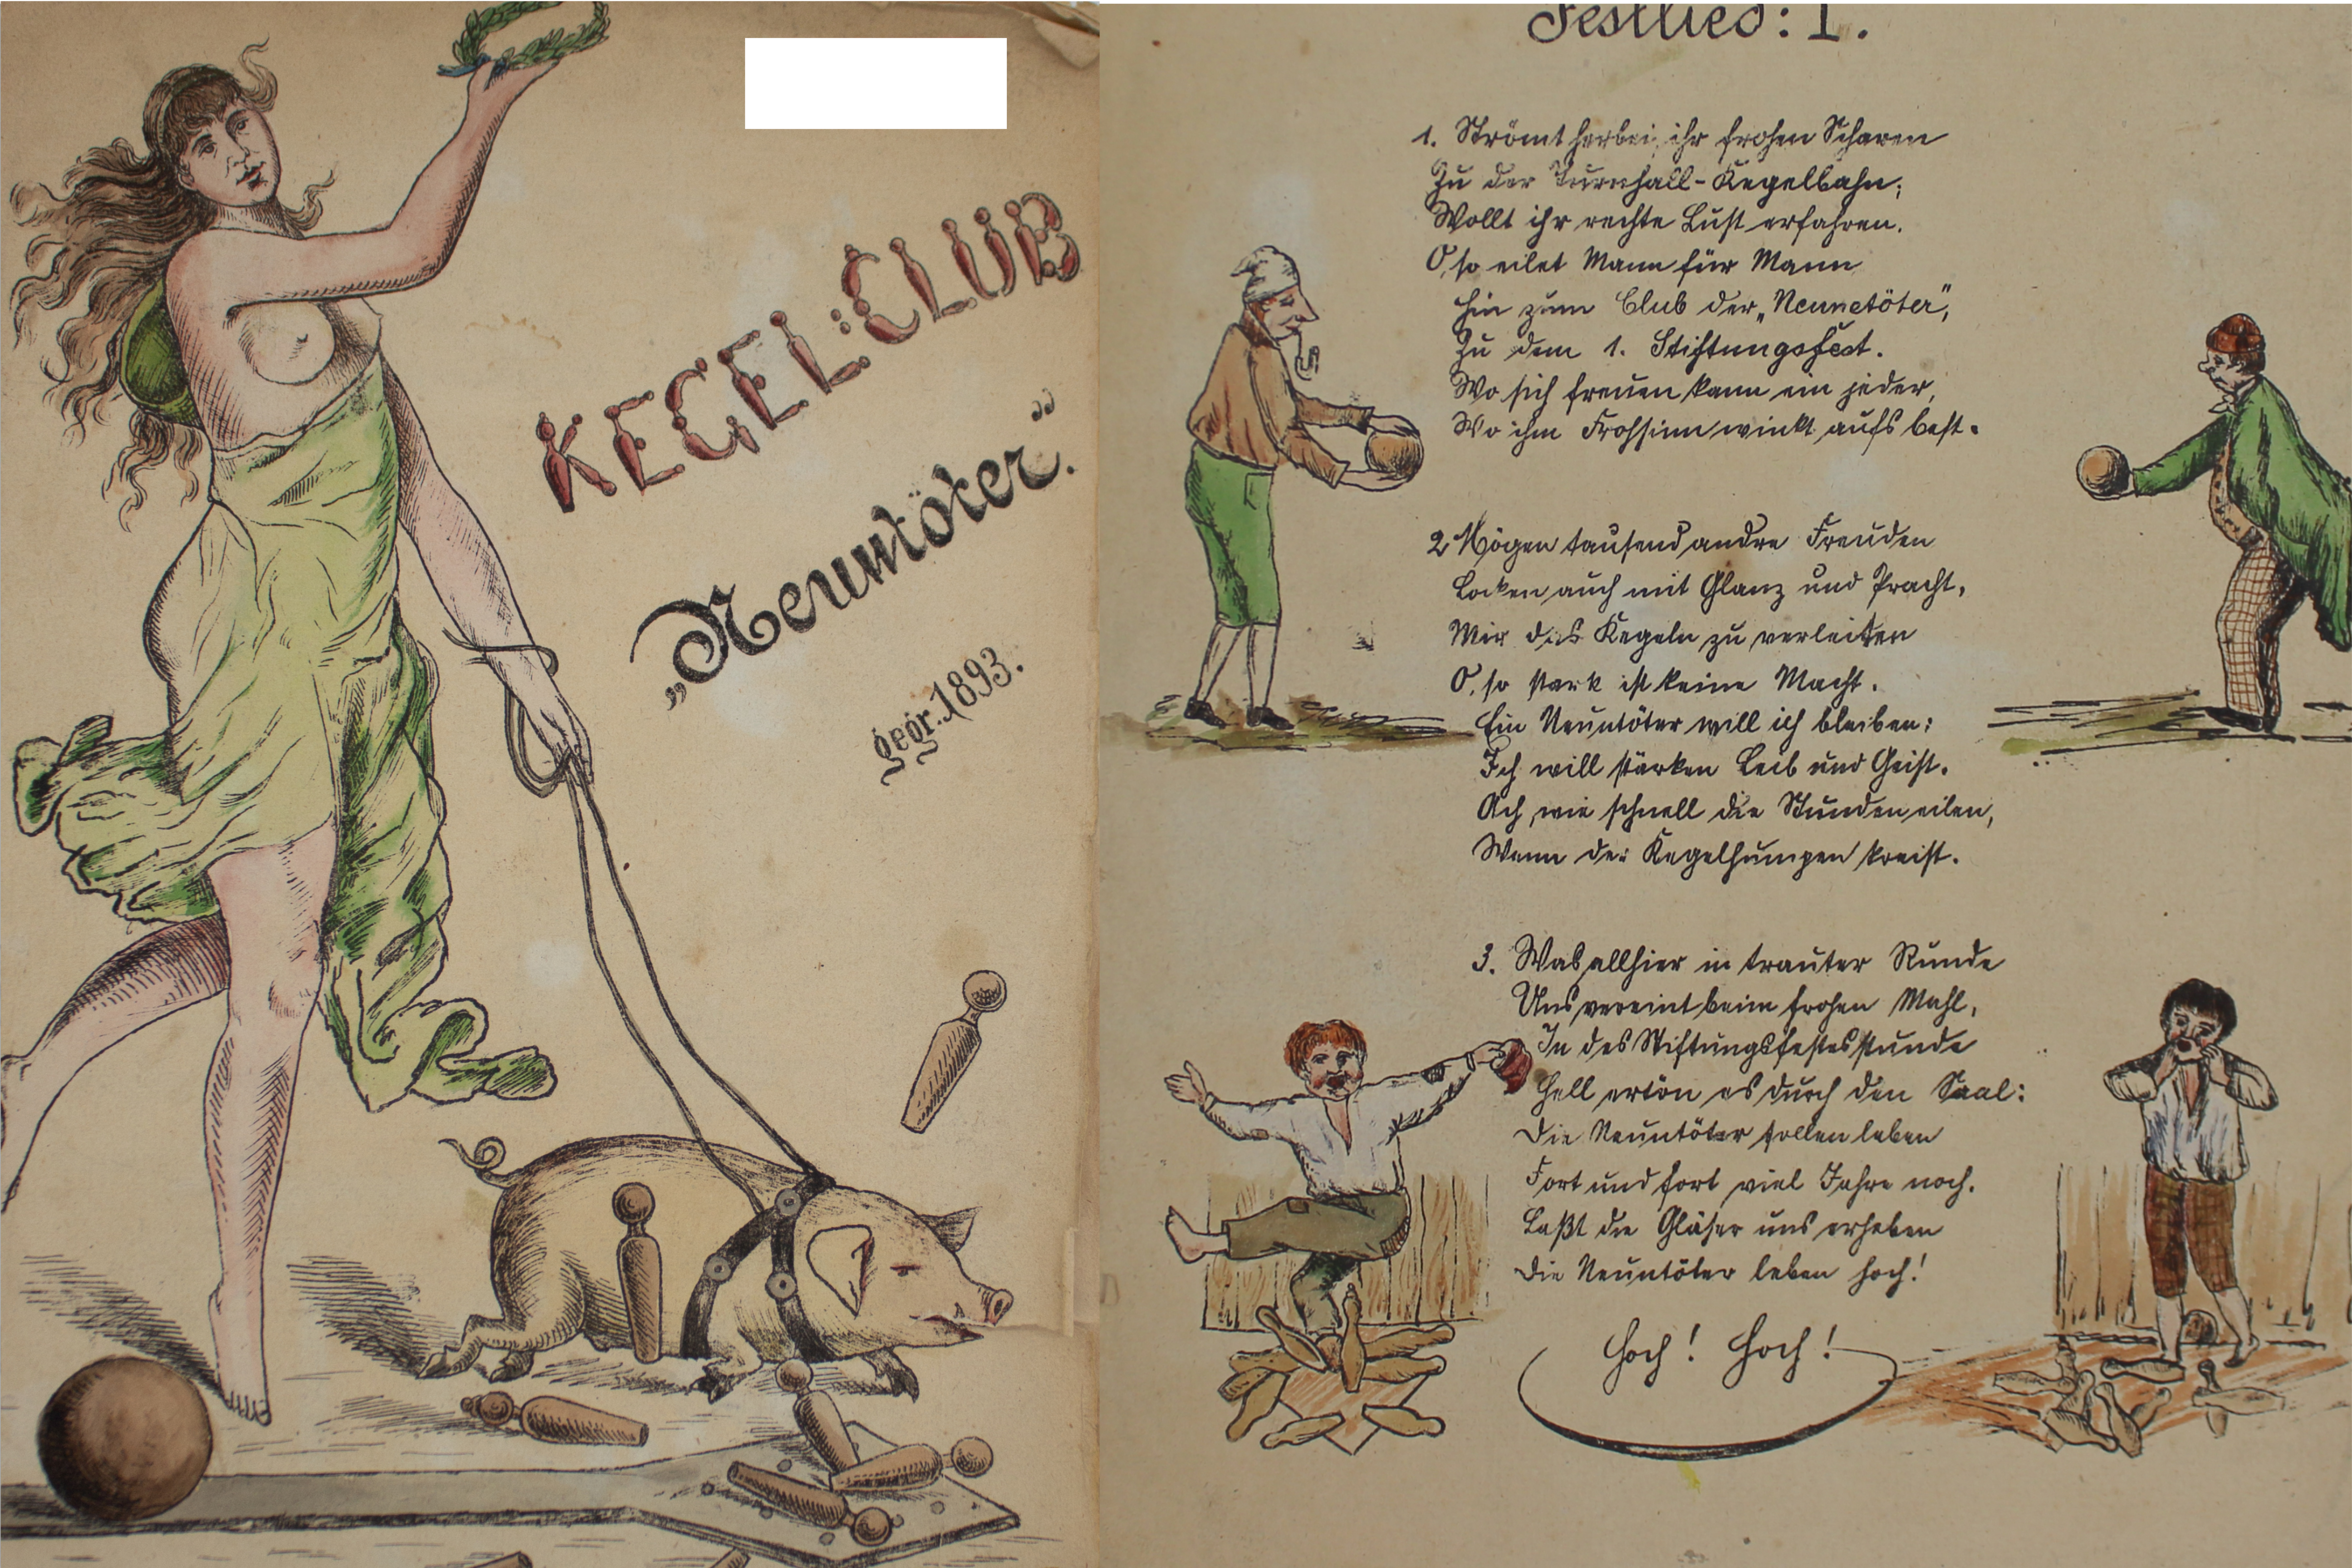 KEGEL-CLUB
„Neuntöter.“
gegr. 1893.
Festlied: I.
1. Strömt herbei, ihr frohen Scharen
Zu der Turnhall-Kegelbahn;
Wollt ihr rechte Lust erfahren.
O, so eilet Mann für Mann
Hin zum Club der „Neunetöter“,
Zu dem 1. Stiftungsfest.
Wo sich freuen kann ein jeder,
Wo ihm Frohsinn winkt aufs best.
2 Mögen tausend andre Freuden
Locken auch mit Glanz und Pracht,
Mir das Kegeln zu verleiten
O, so stark ist keine Macht.
Ein Neuntöter will ich bleiben:
Ich will stärken Leib und Geist.
Ach, wie schnell die Stunden eilen,
Wenn der Kegelhumpen kreist.
3. Was allhier in trauter Runde
Uns vereint beim frohen Mahl,
In des Stiftungsfestes stunde
Hell ertön es durch den Saal:
Die Neuntöter sollen leben
Fort und fort viel Jahre noch.
Laßt die Gläser uns erheben
Die Neuntöter leben hoch!
Hoch! Hoch!